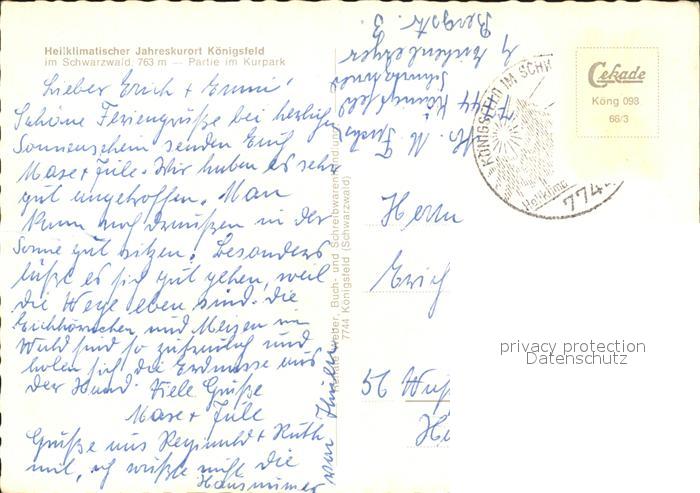 Heilklimatischer Jahreskurort Königsfeld
im Schwarzwald, 763 m — Partie im Kurpark
Lieber Erich + Emmi!
Schöne Feriengrüße bei herlichen
Sonnenschein senden Euch
Maxe + Jule. Wir haben es sehr
gut angetroffen. Man
kann noch draußen in der
Sonne gut sitzen. Besonders
läßt es sich gut gehen, weil
die Wege eben sind. Die
Eichhörnchen und Meisen im
Wald sind so zutraulig und
holen sich die Erdnüsse aus
der Hand. Viele Grüße
Maxe + Jule
Grüße aus Reginald + Ruth
mit, ich wußte nicht die
Hausnummer
von
Buch- und Schreibwarenhandlung
7744 Königsfeld (Schwarzwald)
M.
7744 Königsfeld
Bergstr. 3.
KÖNIGSFELD IM SCHW
Heilklima
774
Cekade
Köng 098
66/3
Herrn
Erich
56 Wup
He
privacy protection
Datenschutz